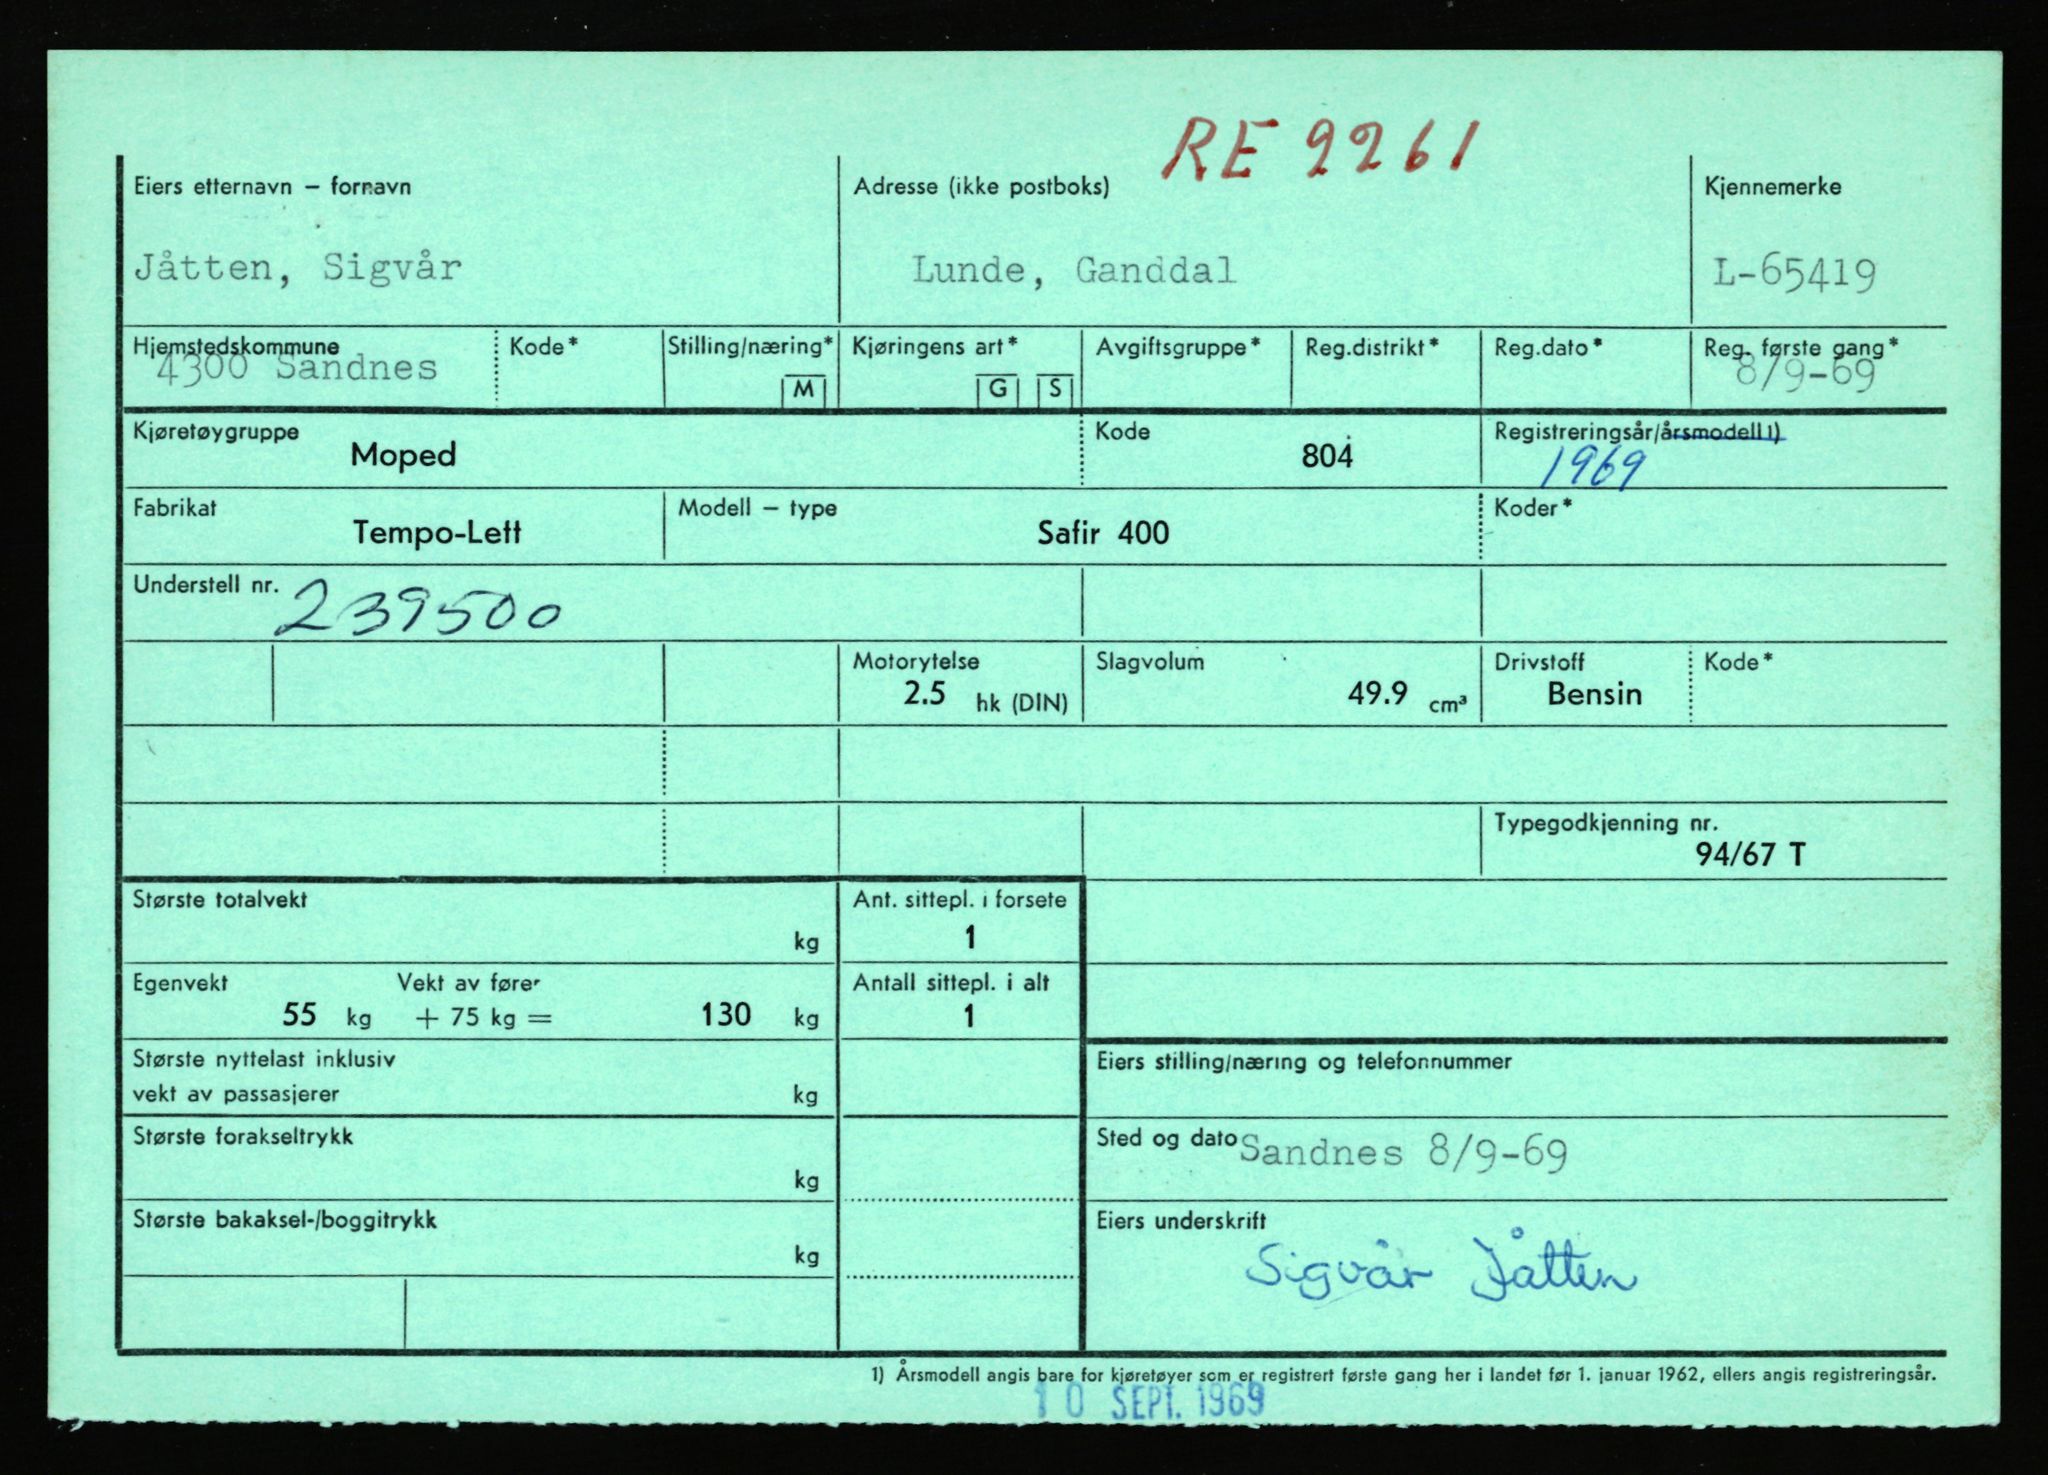 RE 2261
Eiers etternavn – fornavn Adresse (ikke postboks) Kjennemerke
Jåtten, Sigvår Lunde, Ganddal L-65419
Hjemstedskommune Kode* Stilling/næring* Kjøringens art* Avgiftsgruppe* Reg.distrikt* Reg.dato* Reg. første gang*
4300 Sandnes M G S 8/9-69
Kjøretøygruppe Kode Registreringsår/årsmodell 1)
Moped 804 1969
Fabrikat Modell – type Koder*
Tempo-Lett Safir 400
Understell nr. 239500
Motorytelse Slagvolum Drivstoff Kode*
2.5 hk (DIN) 49.9 cm³ Bensin
Typegodkjenning nr.
94/67 T
Største totalvekt Ant. sittepl. i forsete
kg 1
Egenvekt Vekt av fører Antall sittepl. i alt
55 kg + 75 kg = 130 kg 1
Største nyttelast inklusiv Eiers stilling/næring og telefonnummer
vekt av passasjerer kg
Største forakseltrykk Sted og dato Sandnes 8/9-69
kg
Største bakaksel-/boggitrykk Eiers underskrift
kg Sigvår Jåtten
1) Årsmodell angis bare for kjøretøyer som er registrert første gang her i landet før 1. januar 1962, ellers angis registreringsår.
10 SEPT. 1969